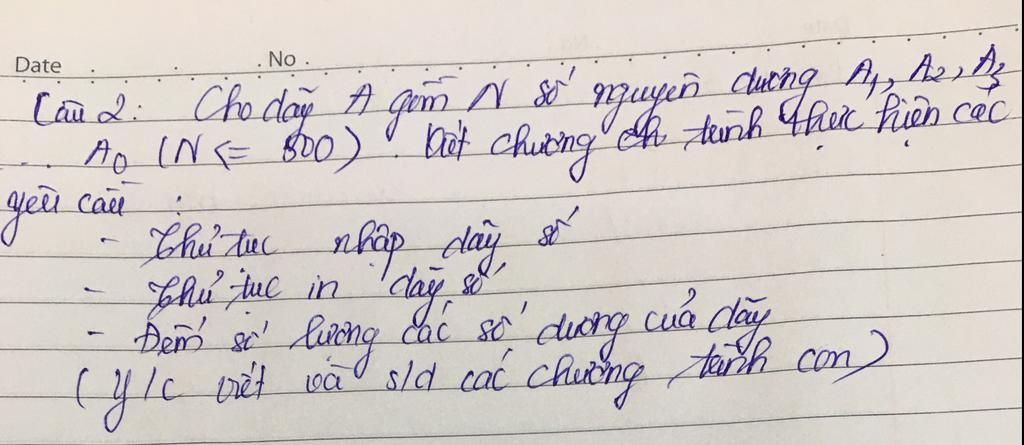 Date . No .
Câu 2: Cho dãy A gồm N số nguyên dương A1, A2, A3
... A0 (N <= 500). Viết chương ch trình thực hiện các
yêu cầu :
- Thủ tục nhập dãy số
- Thủ tục in dãy số
- Đếm số lượng các số dương của dãy
( Y/c viết và s/d các chương trình con)